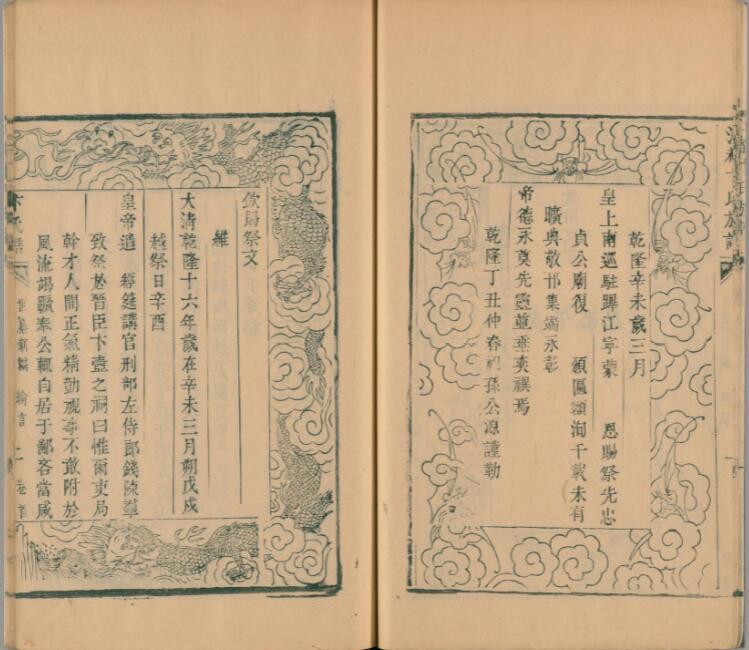 乾隆辛未歲三月
皇上南巡駐蹕江寧蒙 恩賜祭先忠
貞公廟復 頒匾額洵千載未有
曠典敬刋集端永彰
帝德永奠先靈並垂奕禩焉
乾隆丁丑仲春裔孫公源謹勒
欽賜祭文
維
大清乾隆十六年歲在辛未三月朔戊戌
越祭日辛酉
皇帝遣 經筵講官刑部左侍郎錢陳羣
致祭於晉臣卞壼之祠曰惟爾吏局
幹才人間正氣精勤視事不敢附於
風流竭蹶奉公輒自居于鄙吝當咸
卞氏譜 世纂新編 綸言 二 卷首